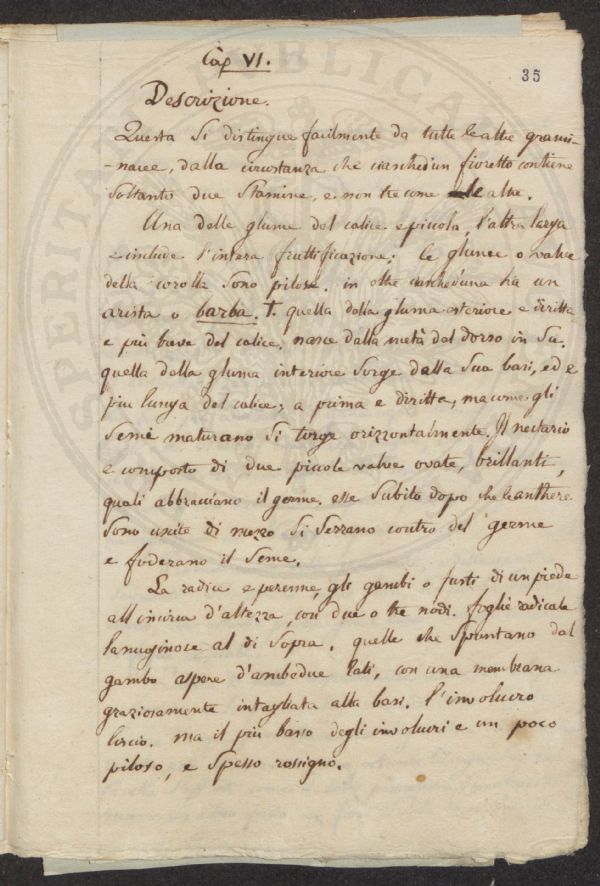 Cap VI.
35
Descrizione.
Questa si distingue facilmente da tutte le altre grami-
-nacee, dalla circostanza che ciaschedun fioretto contiene
soltanto due stamine, e non tre come le altre.
Una delle glume del calice e piccola, l'altra larga
e include l'intera fruttificazione; le glumee o valve
della corolla sono pilose. in oltre ciasched'una ha un
arista o barba. T. quella della gluma esteriore e diritta
e più breve del calice, nasce dalla metà del dorso in su.
quella della gluma interiore sorge dalla sua basi, ed e
piu lunga del calice; a prima e diritta, ma come gli
semi maturano si torge orizzontalmente. Il nectario
e composto di due piccole valve ovate, brillanti,
quali abbracciano il germe. esse subito dopo che le anthere
sono uscite di mezzo si serrano contro del germe
e foderano il seme.
La radice e perenne, gli gambi o fusti di un piede
all'incirca d'altezza, con due o tre nodi. foglie radicale
lanuginose al di sopra. quelle che spuntano dal
gambo aspere d'ambedue lati, con una membrana
graziosamente intagliata alla basi. l'involucro
liscio. ma il più basso degli involucri e un poco
piloso, e spesso rossigno.